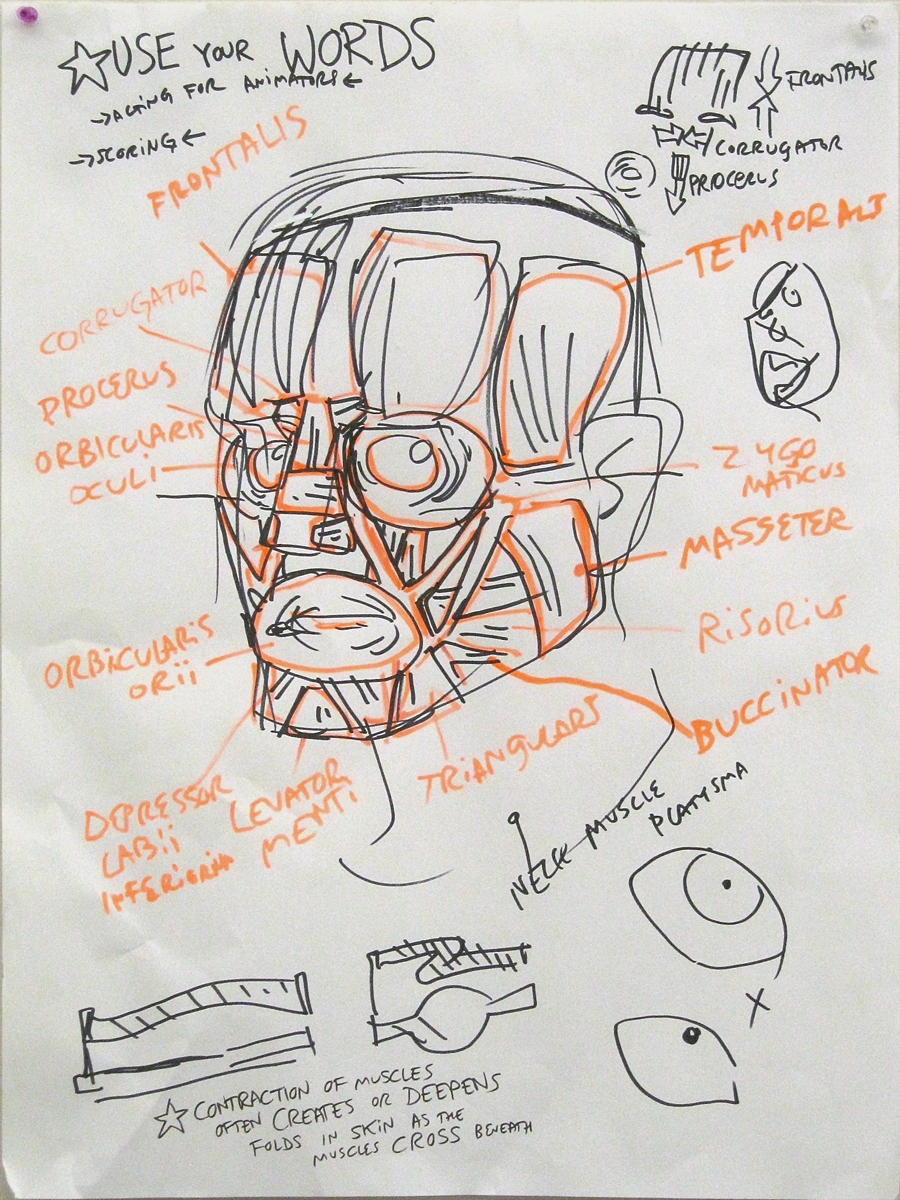 ☆ USE YOUR WORDS
→ ACTING FOR ANIMATORS ←
→ SCORING ←
FRONTALIS
CORRUGATOR
PROCERUS
FRONTALIS
TEMPORALIS
CORRUGATOR
PROCERUS
ORBICULARIS
OCULI
ZYGO
MATICUS
MASSETER
RISORIUS
ORBICULARIS
ORII
BUCCINATOR
TRIANGULARS
DEPRESSOR
LABII
INFERIORIM
LEVATOR
MENTI
NECK MUSCLE
PLATYSMA
X
☆ CONTRACTION OF MUSCLES
OFTEN CREATES OR DEEPENS
FOLDS IN SKIN AS THE
MUSCLES CROSS BENEATH